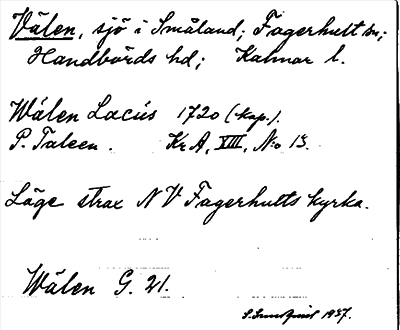 Välen, sjö i Småland; Fagerhult sn;
Handbörds hd; Kalmar l.
Wälen Lacus 1720 (kop.).
P. Taleen. Kr A, XVIII, No 13.
Läge strax N V Fagerhults kyrka.
Wälen G. 21.
1937.